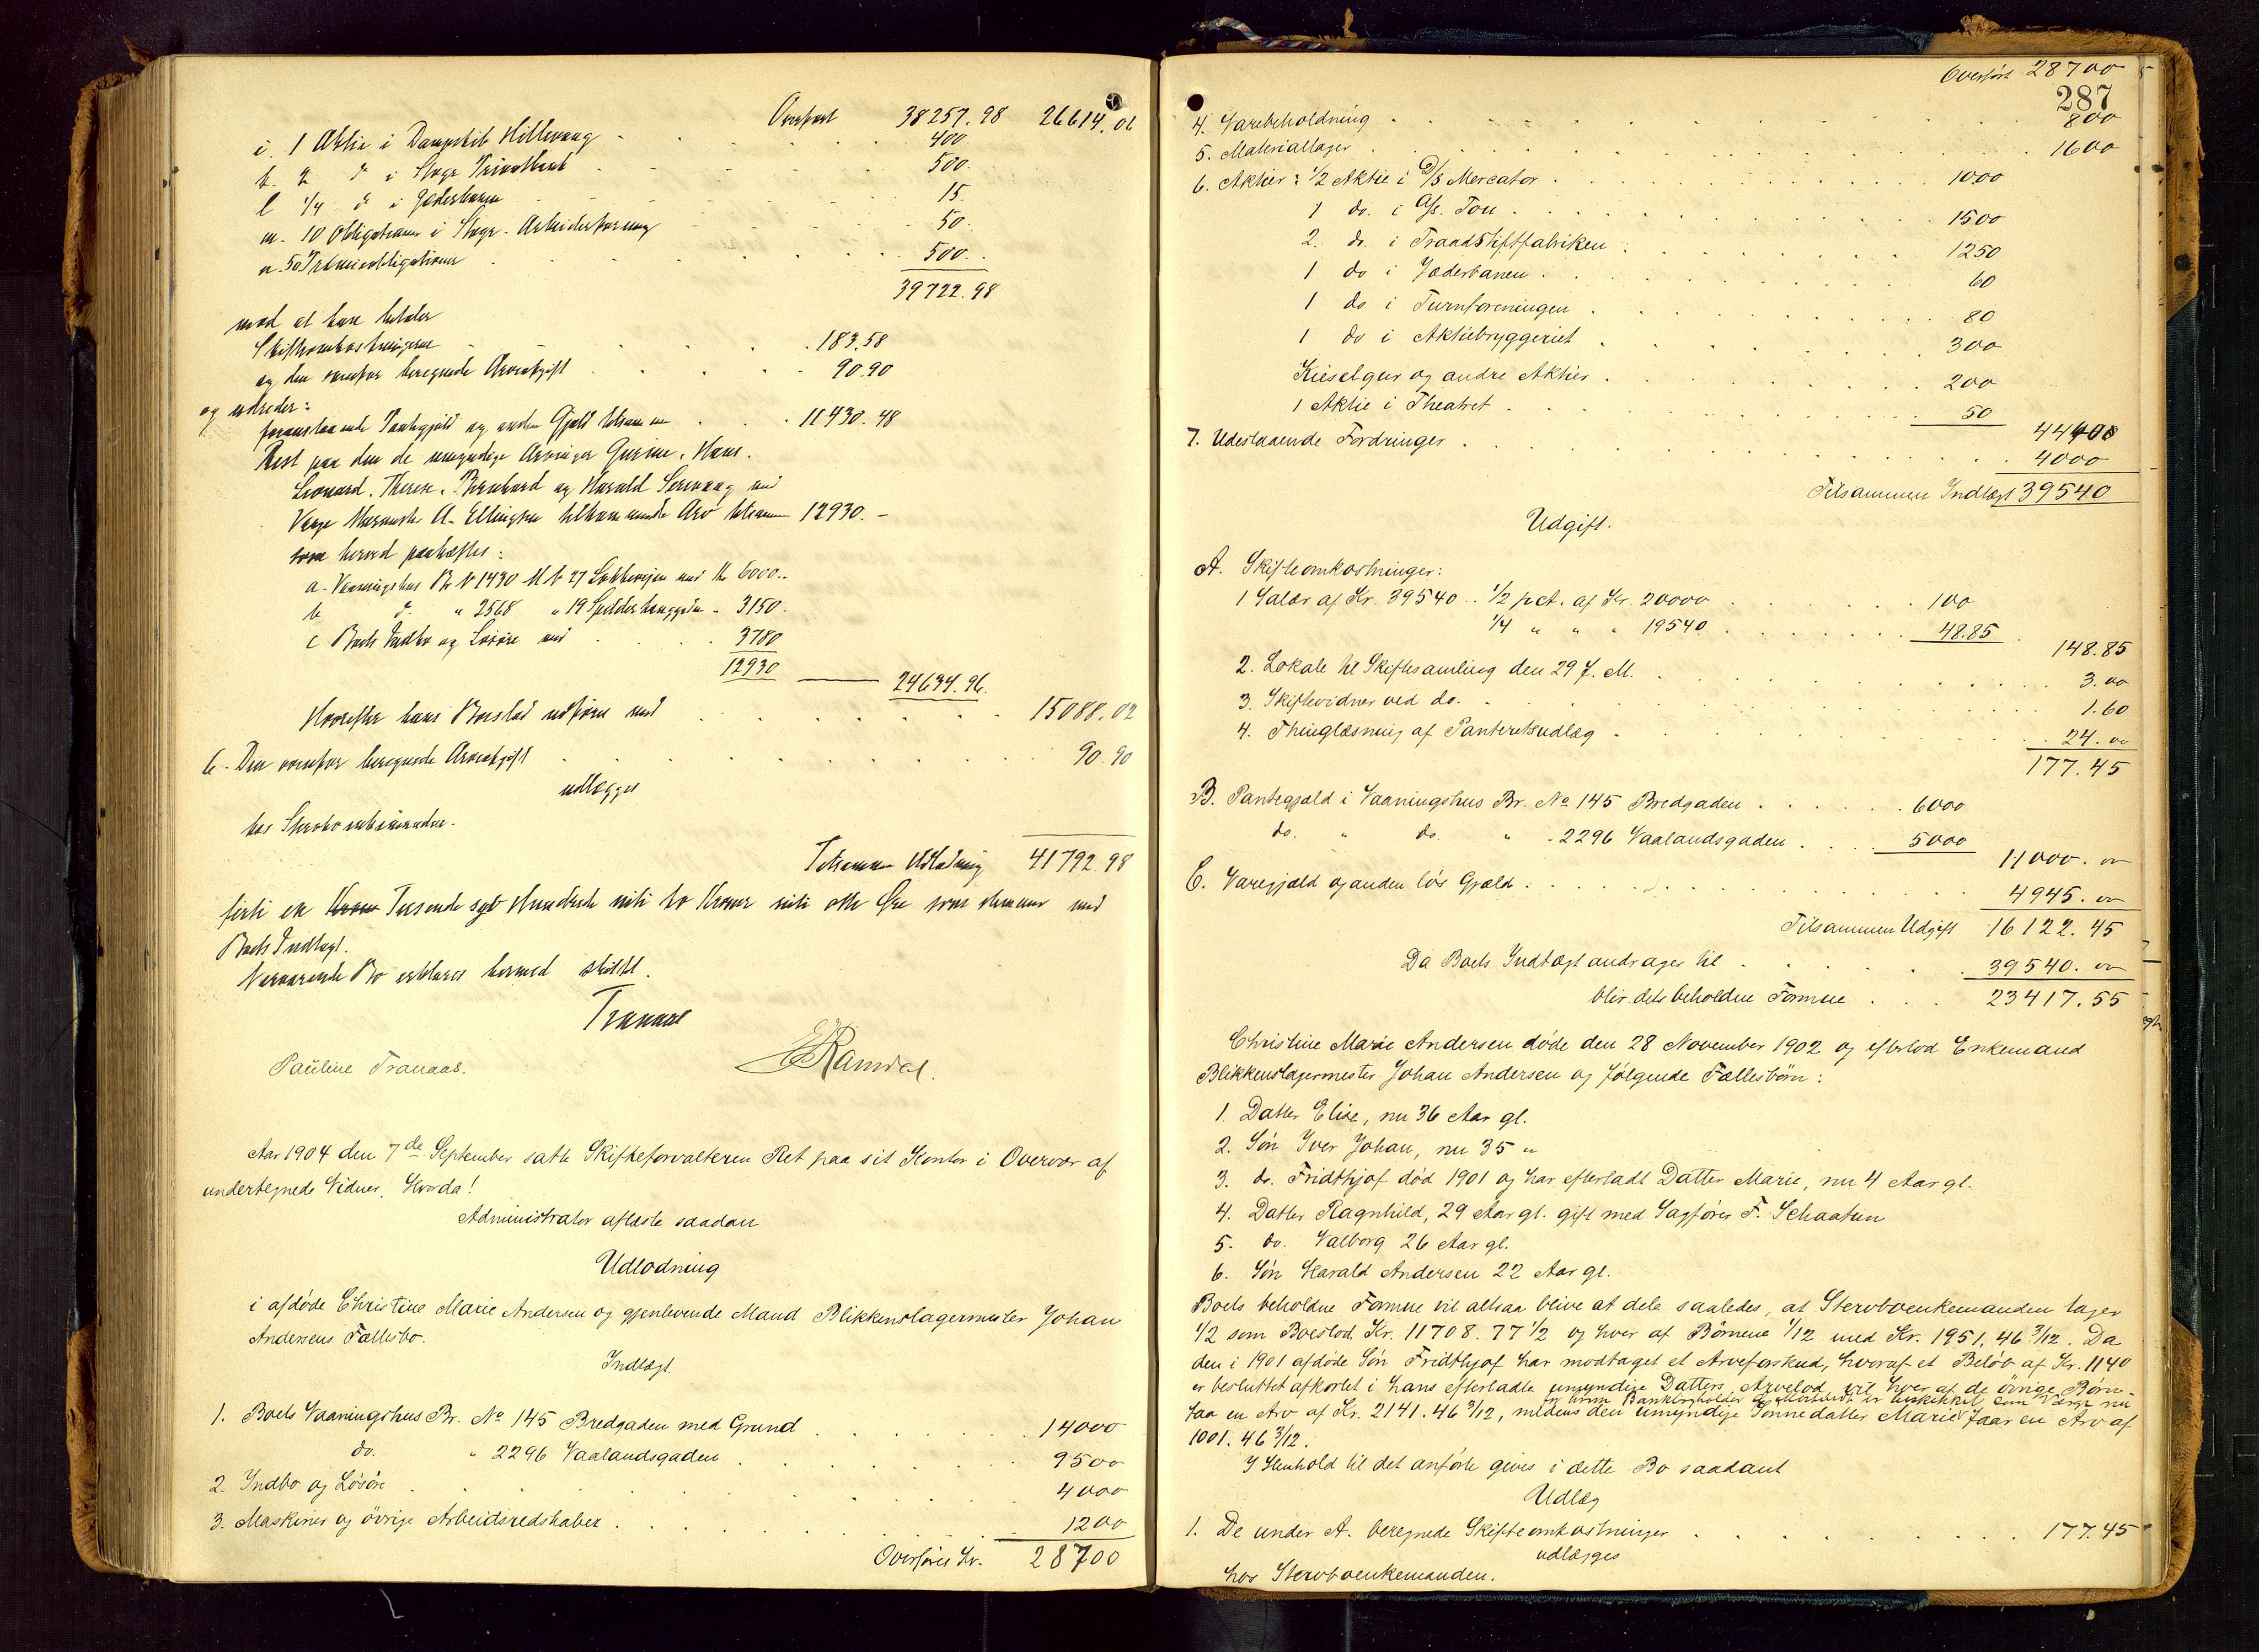 Overført 38257.98 26614.06
i. 1 Aktie i Dampskib Hillevaag 400
k. 2 do i Stvgr Privatbank 500.
l 1/4 do i Jæderbanen 15
m. 10 Obligationer i Stvgr. Arbeiderforening 50.
n. 50 Præmieobligationer 500.
39722.98
mod at han betaler
Skifteomkostningerne 183.58
og den ovenfor beregnede Arveafgift 90.90
og udreder:
foranstaaende Pantegjæld og anden Gjæld tilsammen 11430.48
Rest paa den de umyndige Arvinger Gurine, Hans,
Leonard, Therese, Bernhard og Harald ved
Værge A. Ellingsen tilkommende Arv tilsammen 12930.-
som herved paahæftes:
a. Vaaningshus Br N 1430 M b 27 Løkkeveien med Kr 6000.
b do " 2568 " 19 - 3150.
c Boets Indbo og Løsøre med 3780
12930 24634.96.
Hvorefter hans Boeslod udføres med 15088.02
6. Den ovenfor beregnede Arveafgift 90.90
udlægges
hos Stervboenkemanden.
Tilsammen Udlodning 41792.98
firti en Tusende syv Hundrede niti to Kroner niti otte Øre som stemmer med
Boets Indtægt.
Nærværende Bo erklæres hermed sluttet.
Tranaas
Pauline Tranaas. Ramdal.
Aar 1904 den 7de September satte Skifteforvalteren Ret paa sit Kontor i Overvær af
undertegnede Vidner. Hvorda!
Administrator aflæste saadan
Udlodning
i afdøde Christine Marie Andersen og gjenlevende Mand Blikkenslagermester Johan
Andersens Fællesbo.
Indtægt.
1. Boets Vaaningshus Br. No 145 Bredgaden med Grund 14000
do. " 2296 Vaalandsgaden 9500
2. Indbo og Løsøre 4000
3. Maskiner og øvrige Arbeidsredskaber 1200
Overføres Kr. 28700
Overført 28700
287
4. Varebeholdning 800
5. Materiallager 1600
6. Aktier: 1/2 Aktie i D/S Mercator 1000
1 do. i A/S. Tou 1500
2. do. i Traadstiftfabriken 1250
1 do i Jæderbanen 60
1 do i Turnforeningen 80
1 do i Aktiebryggeriet 300
Kieselgur og andre Aktier 200
1 Aktie i Theatret 50
4440
7. Udestaaende Fordringer 4000
Tilsammen Indtægt 39540
Udgift.
A. Skifteomkostninger:
1 Salær af Kr. 39540 .. 1/2 pct. af Kr. 20000 100
1/4 " " " 19540 48.85 148.85
2. Lokale til Skiftesamling den 29 f. M. 3.00
3. Skiftevidner ved do. 1.60
4. Thinglæsning af Panteretsudlæg 24.00
177.45
B. Pantegjæld i Vaaningshus Br. No 145 Bredgaden 6000
do. " do. " 2296 Vaalandsgaden 5000
11000.00
C. Varegjæld og anden løs Gjæld 4945.00
Tilsammen Udgift 16122.45
Da Boets Indtægt andrager til 39540.00
blir dets beholdne Formue 23417.55
Christine Marie Andersen døde den 28 November 1902 og efterlod Enkemand
Blikkenslagermester Johan Andersen og følgende Fællesbørn:
1. Datter Elise, nu 36 Aar gl.
2. Søn Iver Johan, nu 35 "
3. do. Fridthjof død 1901 og har efterladt Datter Marie, nu 4 Aar gl.
4. Datter Ragnhild, 29 Aar gl. gift med Sagfører F. Schaatun
5. do. Valborg 26 Aar gl.
6. Søn Harald Andersen 22 Aar gl.
Boets beholdne Formue vil altsaa blive at dele saaledes, at Stervboenkemanden tager
1/2 som Boeslod Kr. 11708.77 1/2 og hver af Børnene 1/12 med Kr. 1951.46 3/12. Da
den i 1901 afdøde Søn Fridthjof har modtaget et Arveforskud, hvoraf et Beløb af Kr. 1140
er besluttet afkortet i hans efterladte umyndige Datters Arvelod vil hver af de øvrige Børn
faa en Arv af Kr. 2141.46 3/12, medens den umyndige Sønnedatter Marie faar en Arv af
1001.46 3/12.
I Henhold til det anførte gives i dette Bo saadant
Udlæg
1. De under A. beregnede Skifteomkostninger 177.45
udlægges
hos Stervboenkemanden.